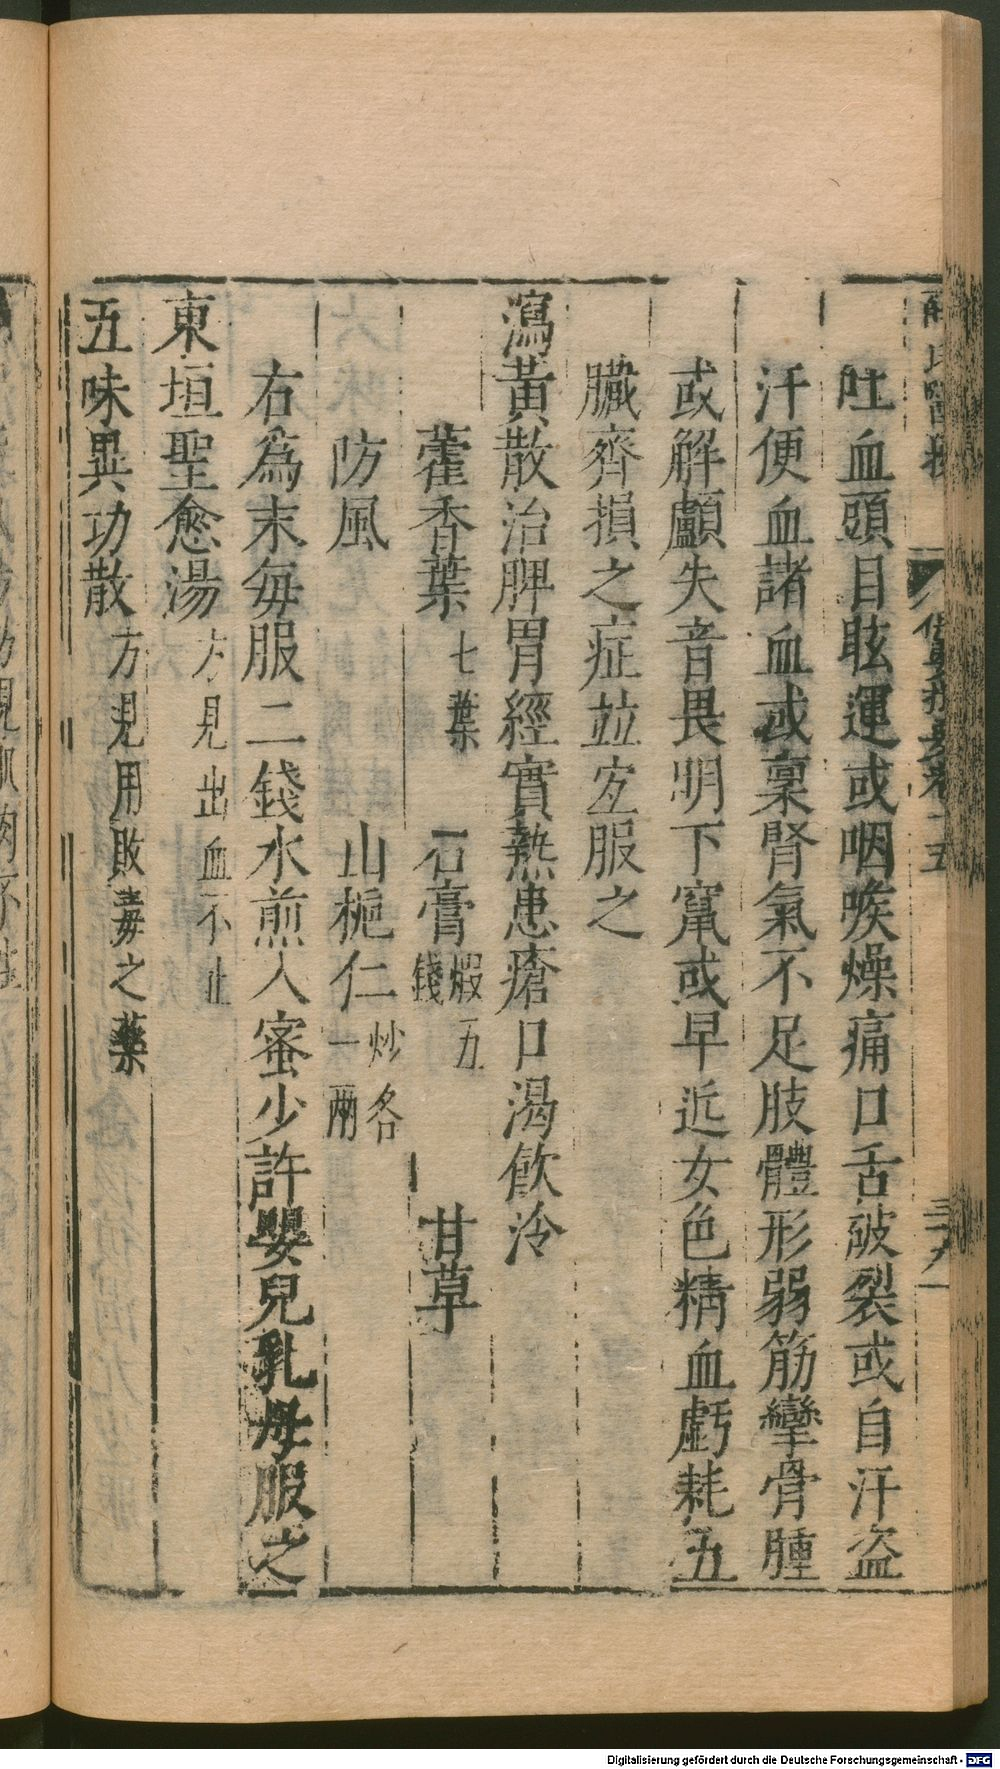 吐血頭目眩運或咽喉燥痛口舌皴裂或自汗盜
汗便血諸血或稟腎氣不足肢體形弱筋攣骨腫
或解顱失音畏明下竄或早近女色精血虧耗五
臟齊損之症並宐服之
瀉黃散治脾胃經實熱患瘡口渴飲冷
藿香葉七葉 石膏煅五錢 甘草
防風 山梔仁炒各一兩
右爲末每服二錢水煎入蜜少許嬰兒乳母服之
東垣聖愈湯方見出血不止
五味異功散方見用敗毒之藥
Digitalisierung gefördert durch die Deutsche Forschungsgemeinschaft - DFG